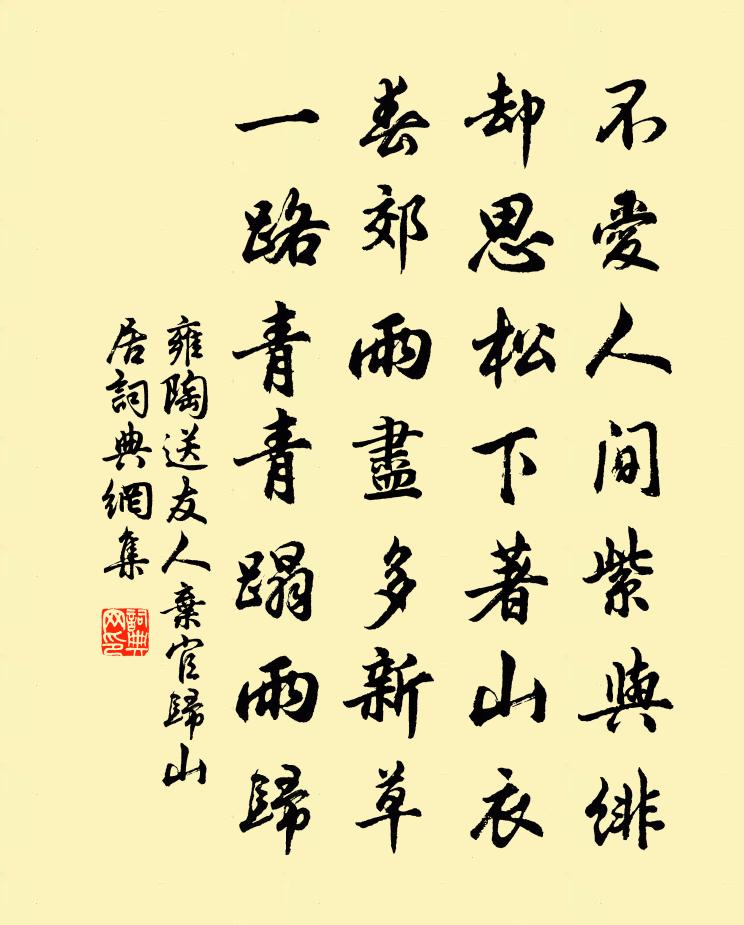 不愛人间紫與緋
却思松下著山衣
春郊雨盡多新草
一路青青蹋雨歸
雍陶送友人棄官歸山
居詞典網集
詞典
网印